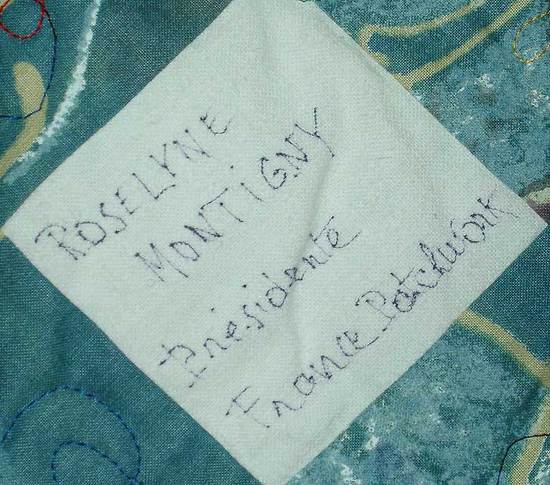 ROSELYNE
MONTIGNY
Présidente
France Patchwork